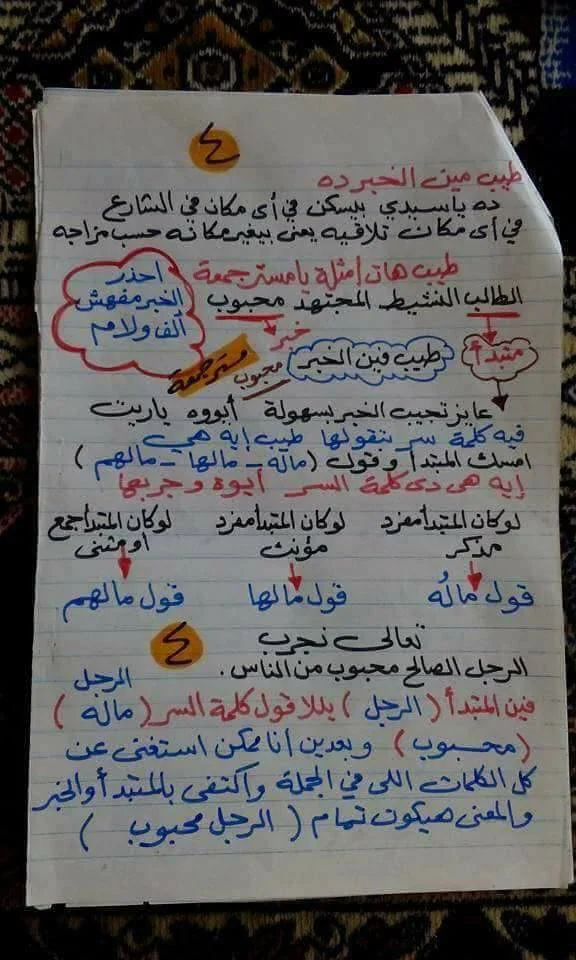 ٤
طيب مين الخبر ده
ده ياسيدي بيسكن في أى مكان في الشارع
في أى مكان تلاقيه يعنى بيغير مكانه حسب مزاجه
طيب هات أمثلة يا مستر جمعة
احذر
الخبر مفهش
ألف ولام
الطالب النشيط المجتهد محبوب
خبر
مبتدأ
طيب فين الخبر
محبوب
مستر جمعة
عايز تجيب الخبر بسهولة أيووه ياريت
فيه كلمة سر بتقولها طيب إيه هي
امسك المبتدأ وقول (ماله - مالها - مالهم)
إيه هى دى كلمة السر أيوة وجربها
لو كان المبتدأ مفرد مذكر
لو كان المبتدأ مفرد مؤنث
لو كان المبتدأ جمع او مثنى
قول مالُه
قول مالها
قول مالهم
تعالى نجرب
٤
الرجل الصالح محبوب من الناس.
الرجل
فين المبتدأ (الرجل) يللا قول كلمة السر (ماله)
(محبوب) وبعدين انا ممكن استغنى عن
كل الكلمات اللى في الجملة واكتفى بالمبتدأ والخبر
والمعنى هيكون تمام (الرجل محبوب)